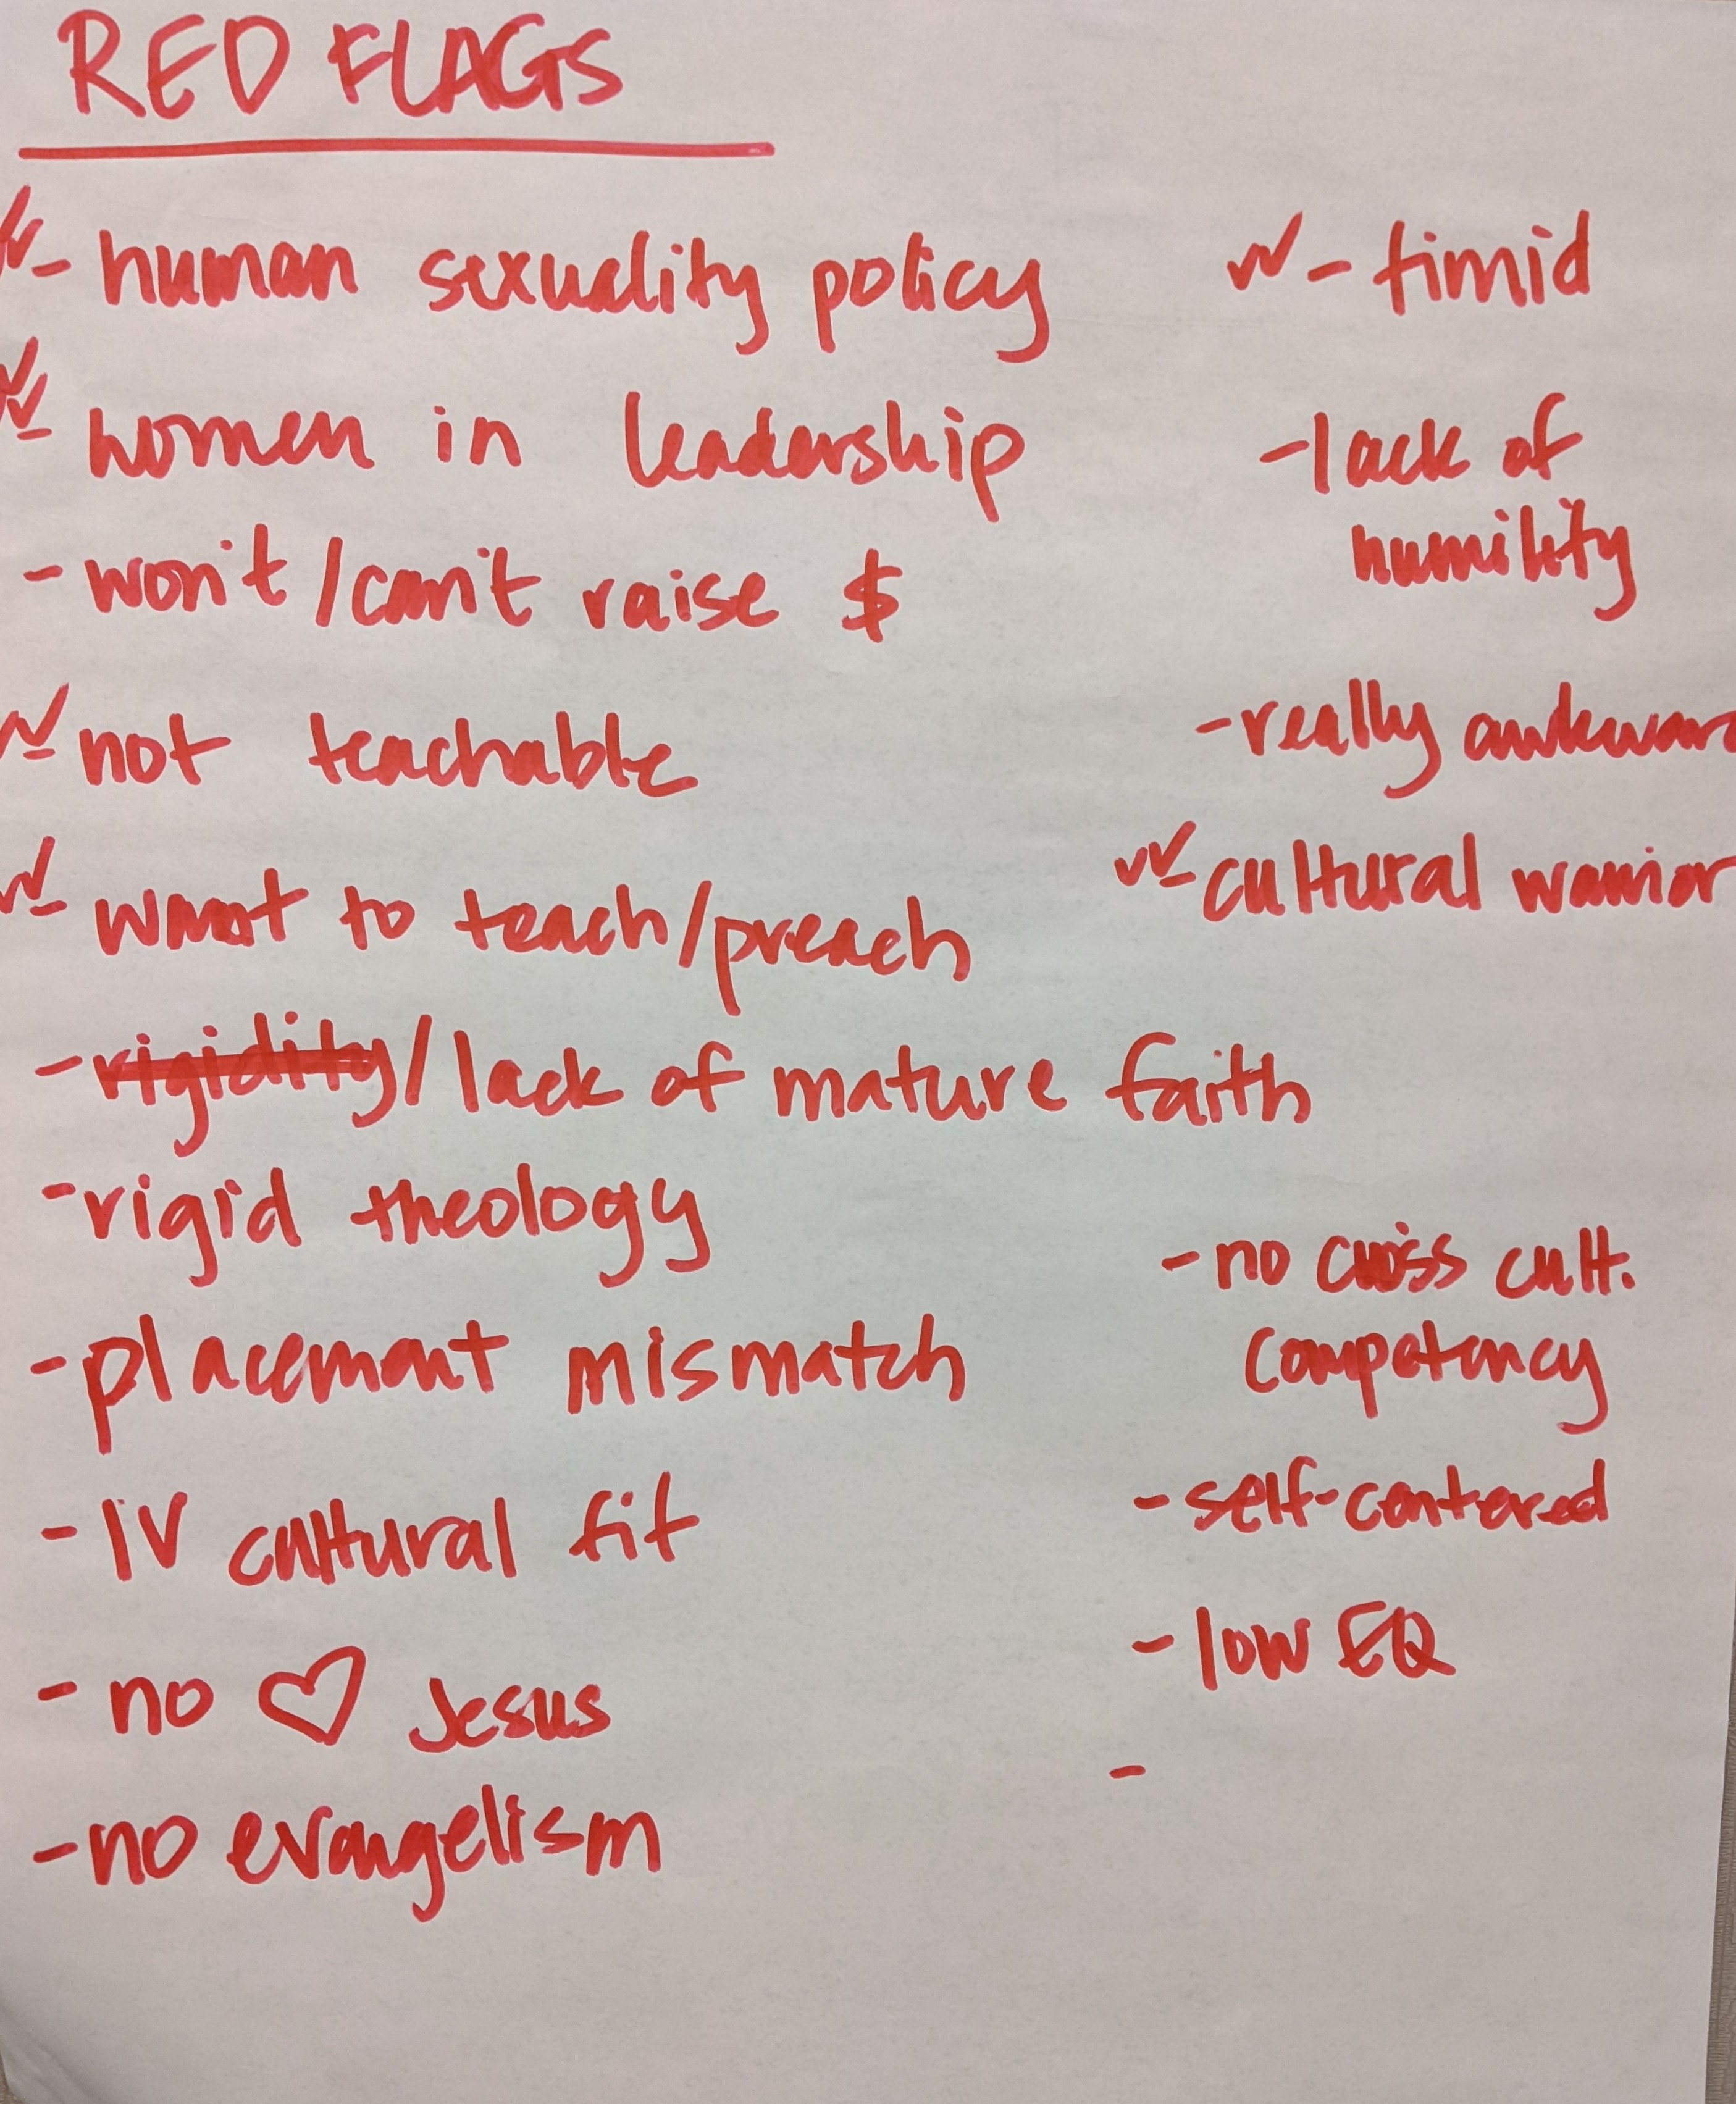 RED FLAGS
- human sexuality policy
- women in leadership
- won't/can't raise $
- not teachable
- want to teach/preach
- rigidity/lack of mature faith
- rigid theology
- placement mismatch
- IV cultural fit
- no ♡ Jesus
- no evangelism
- timid
- lack of
humility
- really awkward
- cultural warrior
- no cross cult.
competency
- self-centered
- low EQ
-